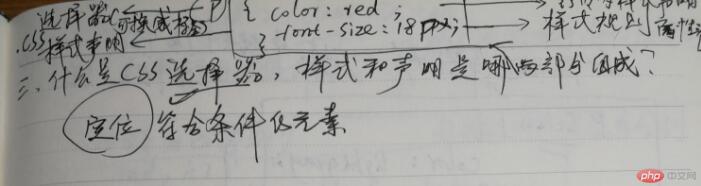 选择器 可换成标签 P { color: red ;
css 样式声明 font-size: 18px; 样式规则
}
三、什么是CSS选择器, 样式和声明是哪两部分组成?
定位 符合条件的元素
php 中文网